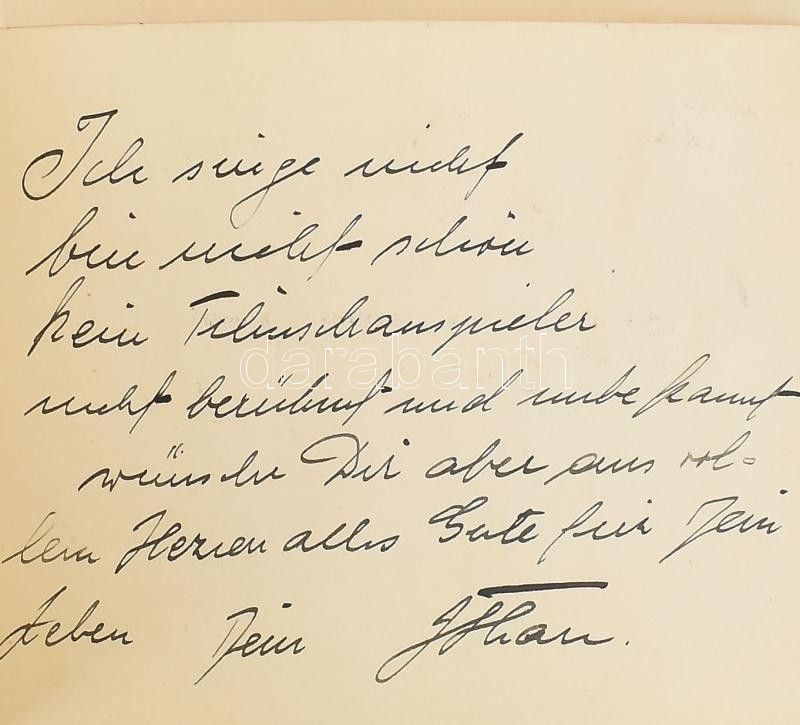 Ich singe nicht
bin nicht schön
kein Filmschauspieler
darabanth
nicht berühmt und unbekannt
wünsche Dir aber aus vol=
lem Herzen alles Gute für Dein
Leben Dein